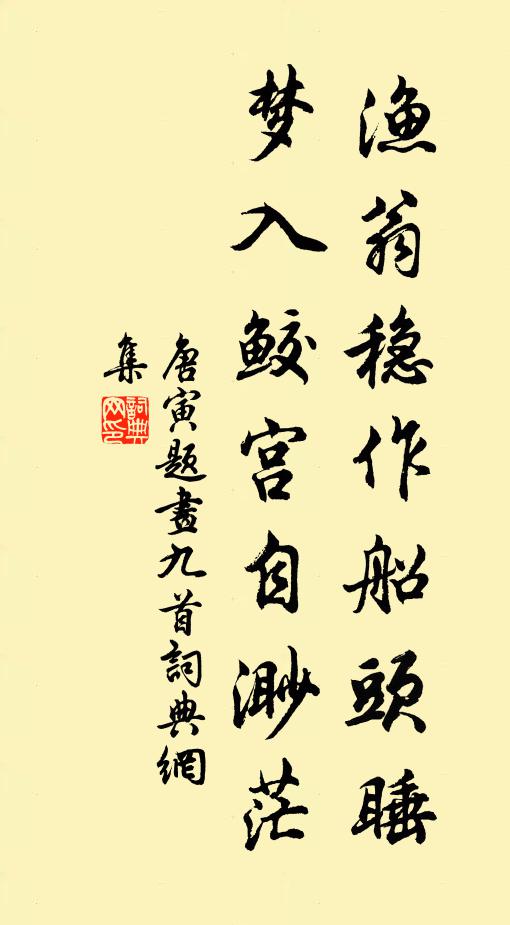 渔翁稳作船頭睡
梦入鲛宫自渺茫
唐寅题畫九首詞典網
集
詞典
网印